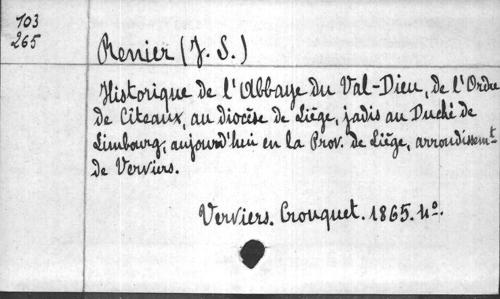 103
265
Renier (J. S.)
Historique de l'Abbaye du Val-Dieu, de l'Ordre
de Cîteaux, au diocèse de Liége, jadis au Duché de
Limbourg, aujourd'hui en la Prov. de Liége, arrondissemt
de Verviers.
Verviers. Crouquet. 1865. 4o.